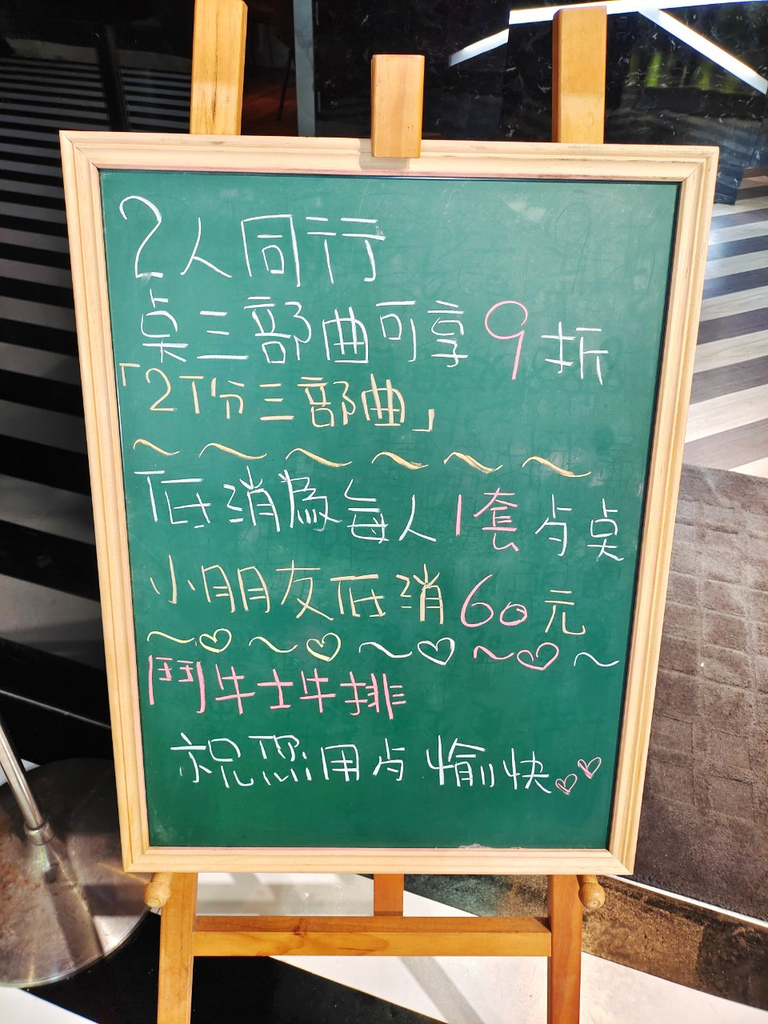 2人同行
桌三部曲可享9折
「2T份三部曲」
低消為每人1套歺桌
小朋友低消60元
鬥牛士牛排
祝您用歺愉快